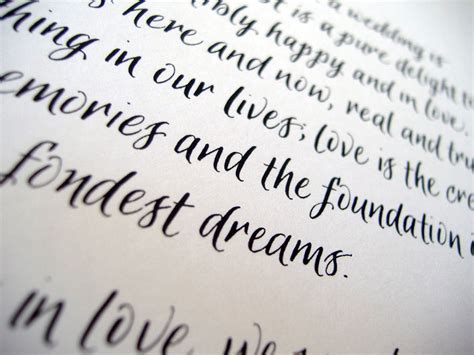 a wedding is
st is a pure delight
bly happy and in love,
s here and now, real and tru
hing in our lives; love is the cre
emories and the foundation
fondest dreams.
in love, we